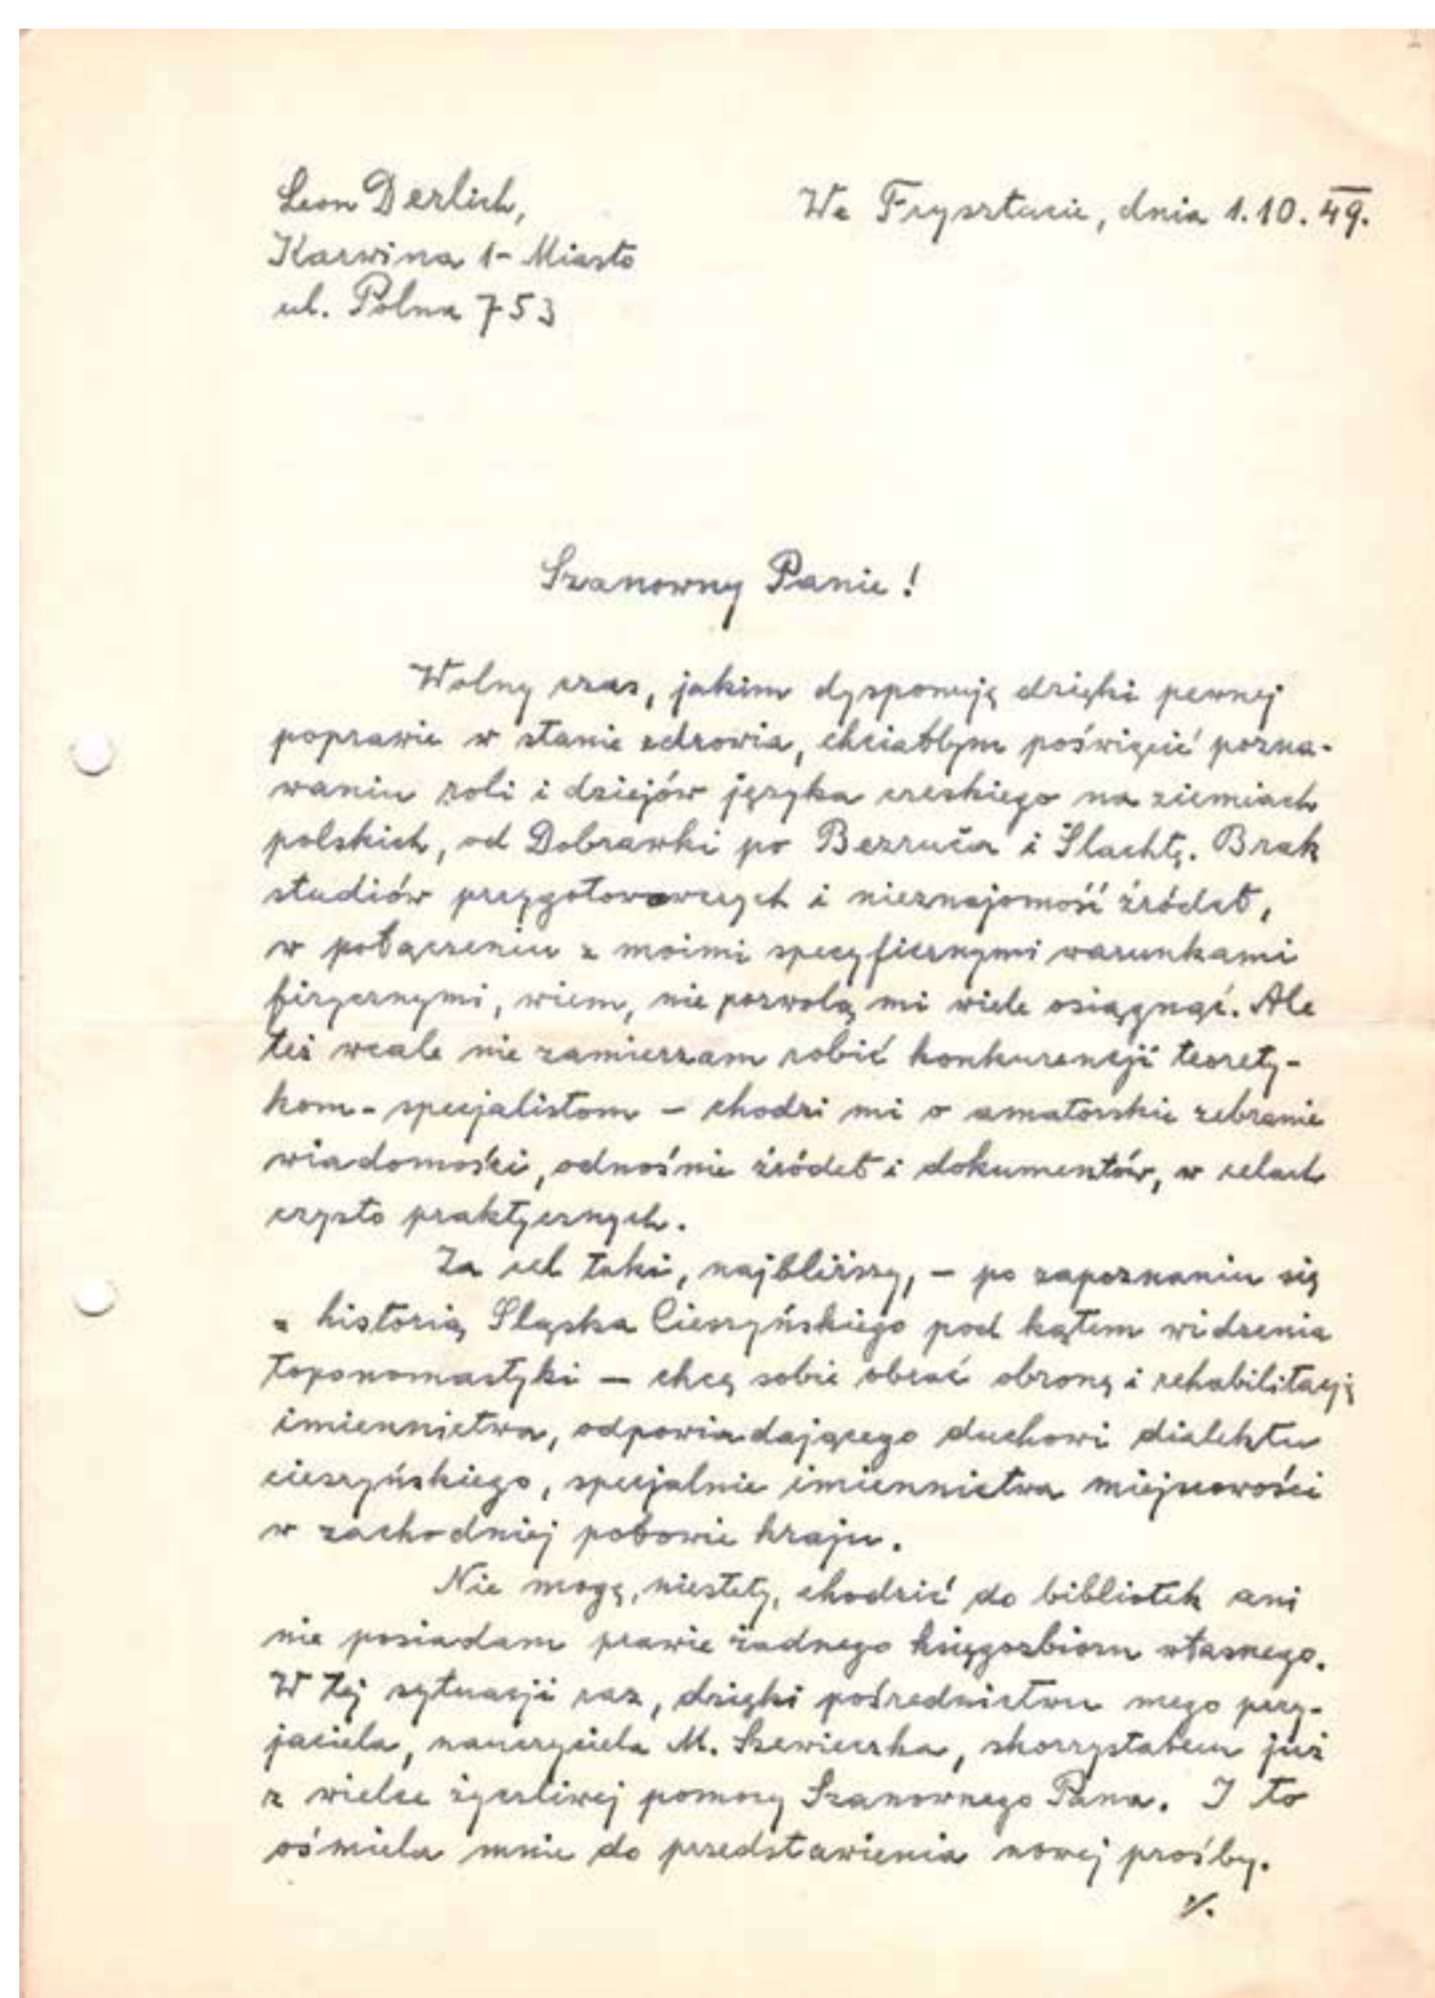 Leon Derlich,
We Frysztacie, dnia 1.10.49.
Karwina 1 - Miasto
ul. Polna 753
Szanowny Panie!
Wolny czas, jakim dysponuję dzięki pewnej
poprawie w stanie zdrowia, chciałbym poświęcić pozna-
waniu roli i dziejów języka czeskiego na ziemiach
polskich, od Dobrawki po Bezruča i Slachtę. Brak
studiów przygotowawczych i nieznajomość źródeł,
w połączeniu z moimi specyficznymi warunkami
fizycznymi, wiem, nie pozwolą mi wiele osiągnąć. Ale
też wcale nie zamierzam robić konkurencji teorety-
kom-specjalistom – chodzi mi o amatorskie zebranie
wiadomości, odnośnie źródeł i dokumentów, w celach
czysto praktycznych.
Za cel taki, najbliższy, – po zapoznaniu się
z historią Śląska Cieszyńskiego pod kątem widzenia
toponomastyki – chcę sobie obrać obronę i rehabilitację
imiennictwa, odpowiadającego duchowi dialektu
cieszyńskiego, specjalnie imiennictwa miejscowości
w zachodniej połowie kraju.
Nie mogę, niestety, chodzić do bibliotek ani
nie posiadam prawie żadnego księgozbioru własnego.
W tej sytuacji raz, dzięki pośrednictwu mego przy-
jaciela, nauczyciela M. Szewieczka, skorzystałem już
z wielce życzliwej pomocy Szanownego Pana. I to
ośmiela mnie do przedstawienia nowej prośby.
./.